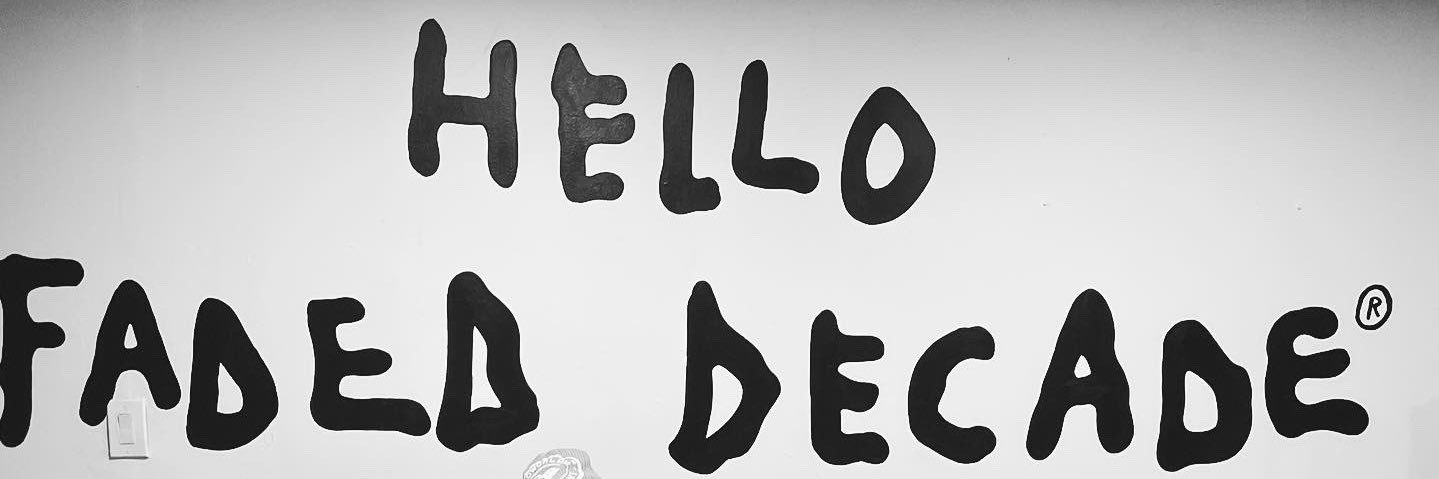 HELLO
FADED DECADE®